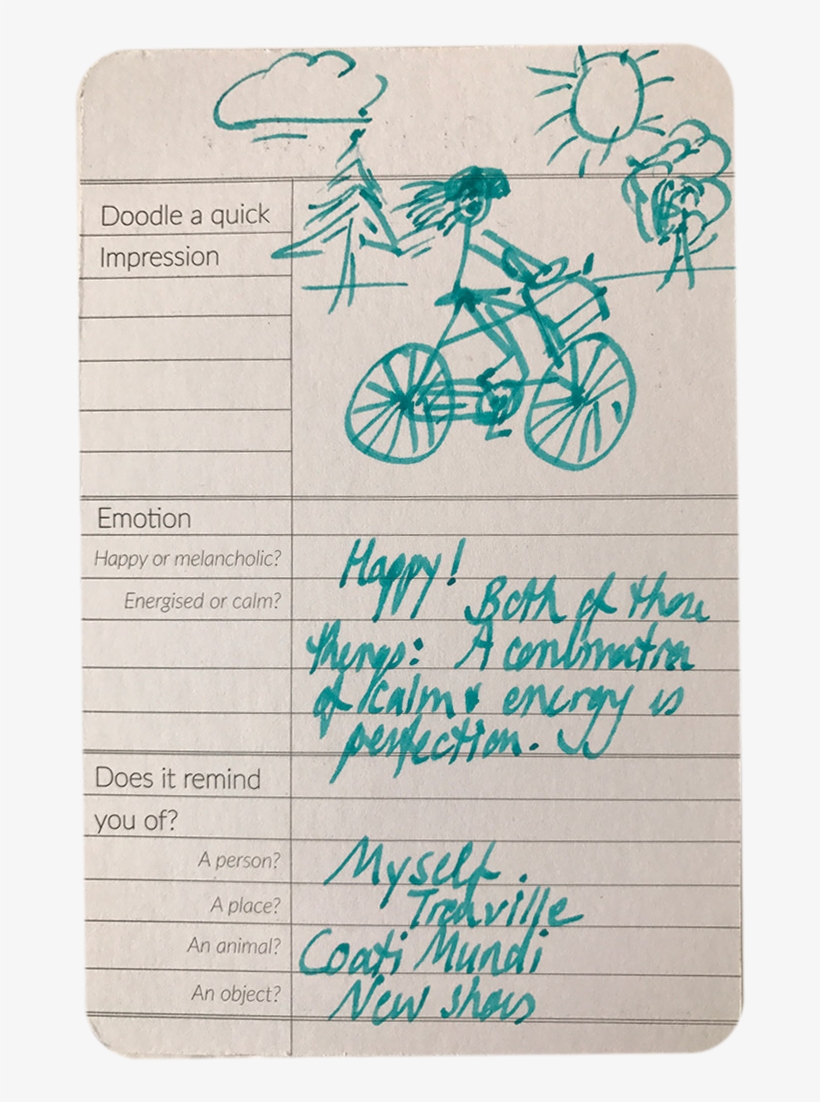 Doodle a quick
Impression
Emotion
Happy or melancholic?
Happy!
Energised or calm?
Both of those
things: A combination
of calm & energy is
perfection.
Does it remind
you of?
A person?
Myself.
A place?
An animal?
Coati Mundi
An object?
New shoes